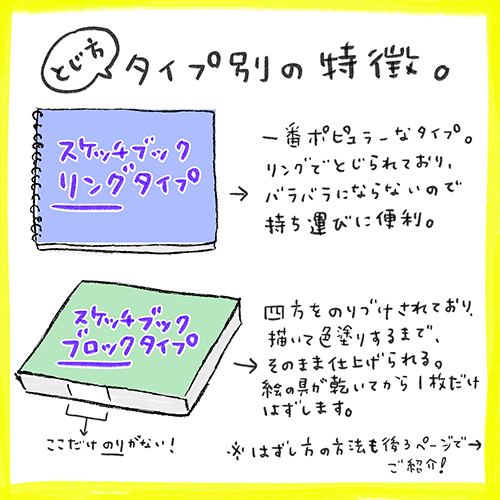 とじ方
タイプ別の特徴。
スケッチブック
リングタイプ
→
一番ポピュラーなタイプ。
リングでとじられており、
バラバラにならないので
持ち運びに便利。
スケッチブック
ブロックタイプ
→
四方をのりづけされており、
描いて色塗りするまで、
そのまま仕上げられる。
絵の具が乾いてから1枚だけ
はずします。
ここだけのりがない!
※はずし方の方法も後ろページで→
ご紹介!